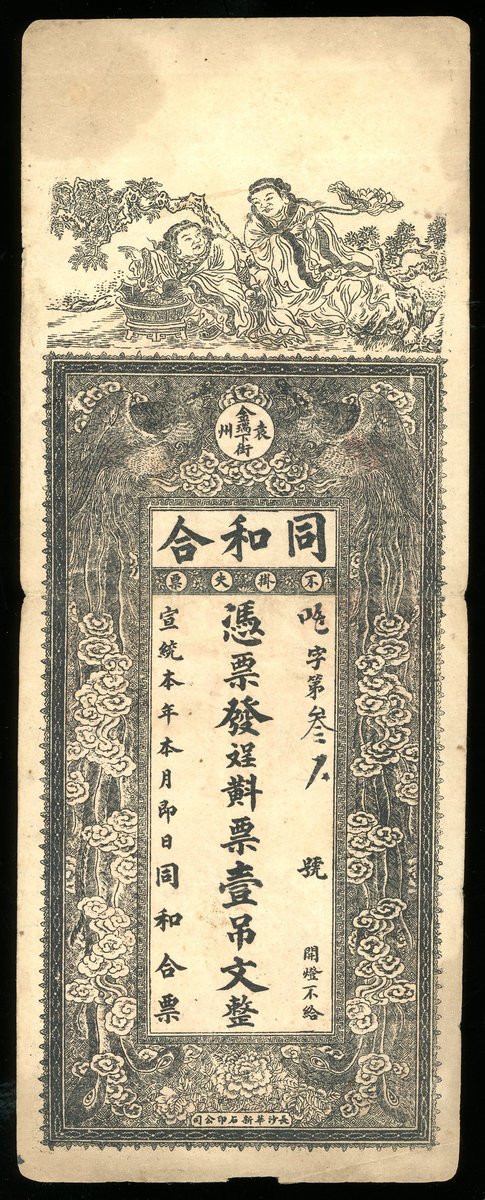 袁州
金瑞下街
同和合
不掛失票
字第叁
號
開燈不給
憑票發 票壹吊文整
宣統本年本月即日同和合票
長沙華新石印公司